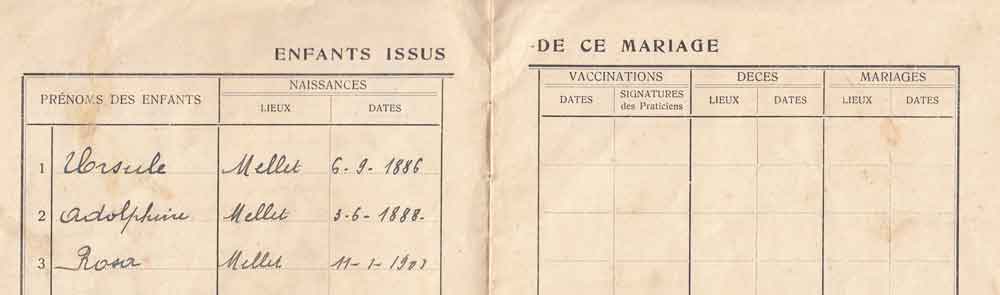 ENFANTS ISSUS DE CE MARIAGE
PRÉNOMS DES ENFANTS NAISSANCES VACCINATIONS DECES MARIAGES
LIEUX DATES DATES SIGNATURES des Praticiens LIEUX DATES LIEUX DATES
1 Ursule Mellet 6-9-1886
2 Adolphine Mellet 3-6-1888-
3 Rosa Mellet